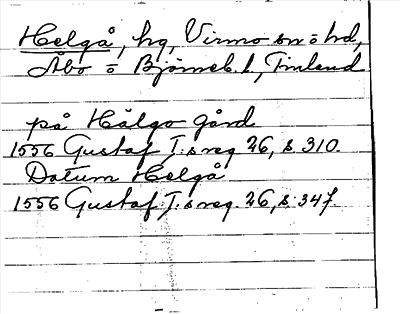 Helgå, hg, Virmo sn ō hd,
Åbo ō Björneb. l, Finland
på Hälgo gård
1556 Gustaf I:s reg. 26, s 310.
Datum Helgå
1556 Gustaf I:s reg. 26, s 347.